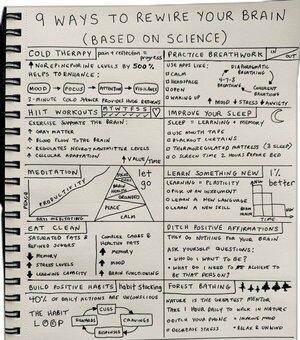 9 WAYS TO REWIRE YOUR BRAIN
(BASED ON SCIENCE)
COLD THERAPY
pain + reflection = progress
↑ NOREPINEPHRINE LEVELS BY 500%
HELPS TO ENHANCE:
MOOD → FOCUS → ATTENTION → VIGILANCE
3-MINUTE COLD SHOWER PROVIDES HUGE BENEFITS
PRACTICE BREATHWORK
IN
OUT
USE APPS LIKE:
CALM
HEADSPACE
OPEN
WAKING UP
DIAPHRAGMATIC BREATHING
4-7-8 BREATHING
COHERENT BREATHING
↑ MOOD ↓ STRESS ↓ ANXIETY
HIIT WORKOUTS
M T W T F S S
EXERCISE SUPPORTS THE BRAIN:
GRAY MATTER
BLOOD FLOW TO THE BRAIN
REGULATES NEUROTRANSMITTER LEVELS
CELLULAR ADAPTATION
↑ VALUE/TIME
IMPROVE YOUR SLEEP
SLEEP = LEARNING + MEMORY
USE MOUTH TAPE
BLACKOUT CURTAINS
THERMOREGULATED MATTRESS (8 SLEEP)
NO SCREEN TIME 2 HOURS BEFORE BED
MEDITATION
let go
PRODUCTIVITY
PEACE
CALM
DAYS MEDITATING
LEARN SOMETHING NEW
1% better
LEARNING = PLASTICITY
PICK UP AN INSTRUMENT
LEARN A NEW LANGUAGE
LEARN A NEW SKILL
EAT CLEAN
SATURATED FATS & REFINED SUGARS
↓ MEMORY
↓ STRESS LEVELS
↓ LEARNING CAPACITY
COMPLEX CARBS & HEALTHY FATS
↑ MEMORY
↑ MOOD
↑ BRAIN FUNCTIONING
DITCH POSITIVE AFFIRMATIONS
THEY DO NOTHING FOR YOUR BRAIN
ASK YOURSELF QUESTIONS:
WHO DO I WANT TO BE?
WHAT DO I NEED TO ACHIEVE TO BE THAT PERSON?
BUILD POSITIVE HABITS
habit stacking
40% OF DAILY ACTIONS ARE UNCONSCIOUS
THE HABIT LOOP
CUES
CRAVINGS
RESPONSES
REWARDS
FOREST BATHING
NATURE IS THE GREATEST MENTOR
TAKE 1 HOUR DAILY TO WALK IN NATURE
DITCH YOUR PHONE
IMPROVE MOOD
DECREASE STRESS
RELAX & UNWIND